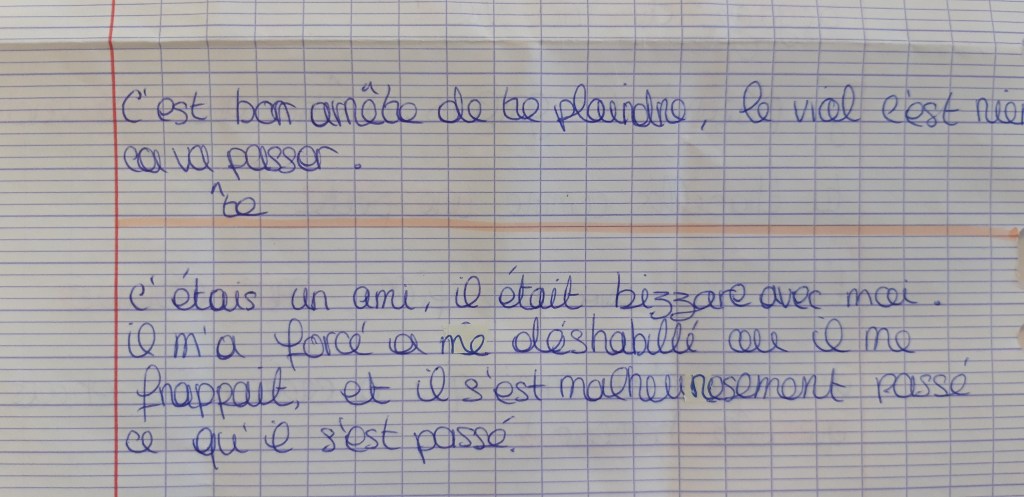 C'est bon arrête de te plaindre, le viol c'est rien
ca va passer.
te
C'étais un ami, il était bizzare avec moi.
il m'a forcé a me déshabillé ou il me
frappait, et il s'est malheuresement passé
ce qu'il s'est passé.